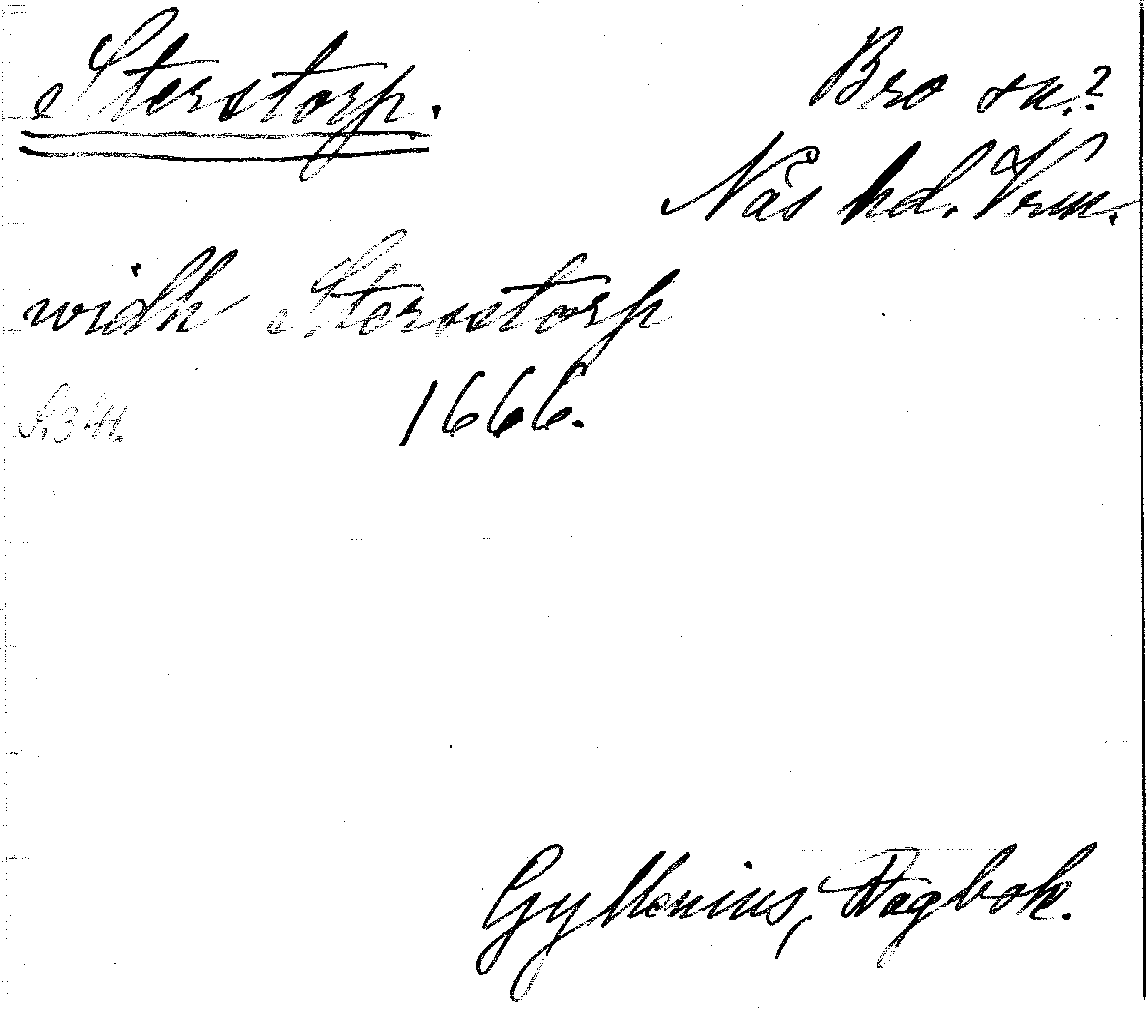 Sterstorp.
Bro sn.?
Näs hd. Vrm.
widh Sterstorp
1666.
Gyllenius, Dagbok.